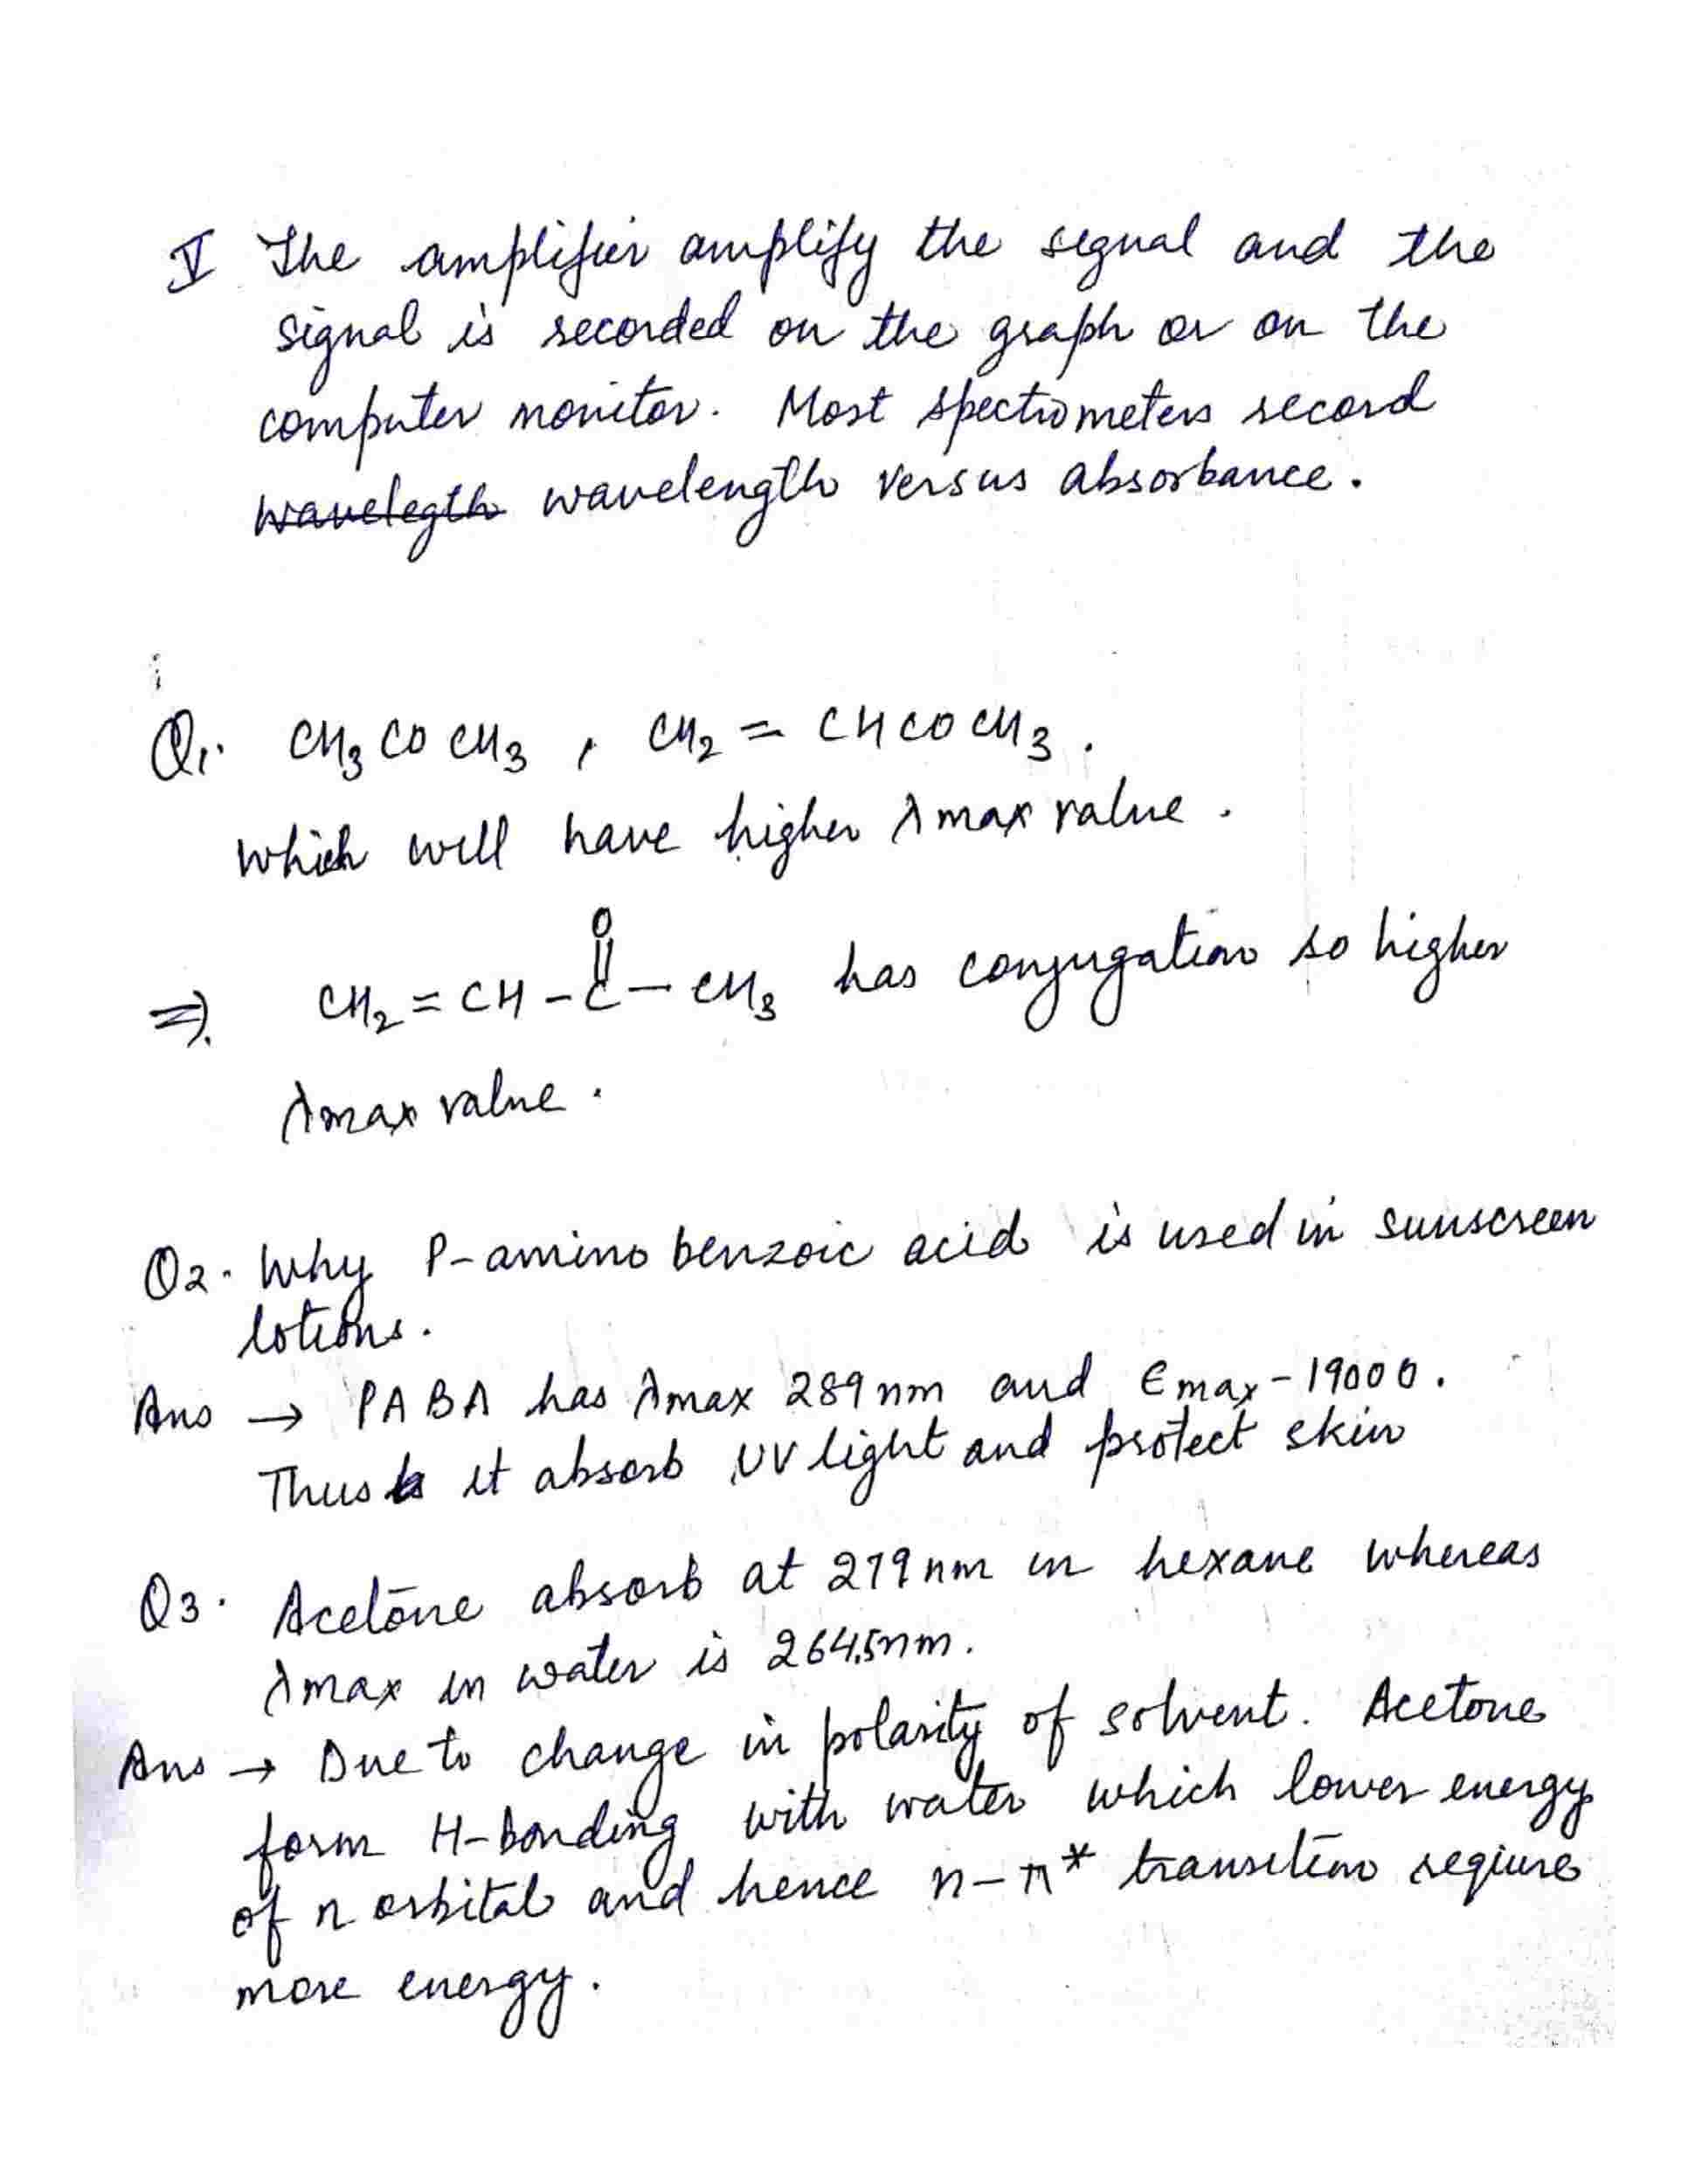 V The amplifier amplify the segnal and the
signal is recorded on the graph or on the
computer monitor. Most spectrometers record
wavelegth wavelength versus absorbance.
Q1. CH3COCH3, CH2=CHCOCH3.
which will have higher λmax value.
O
⇒. CH2=CH-C-CH3 has conjugation so higher
λmax value.
Q2. Why P-amino benzoic acid is used in sunscreen
lotions.
Ans → PABA has λmax 289nm and ϵmax-19000.
Thus it absorb UV light and protect skin
Q3. Acetone absorb at 279nm in hexane whereas
λmax in water is 264.5nm.
Ans → Due to change in polarity of solvent. Acetone
form H-bonding with water which lower energy
of n orbital and hence n-π* transition require
more energy.